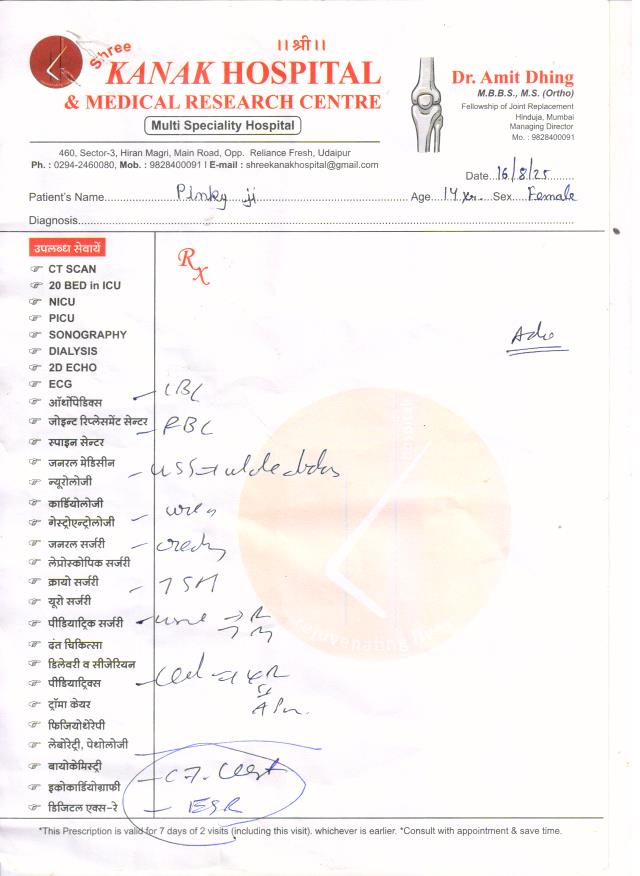 ॥श्री॥
Shree
KANAK HOSPITAL
& MEDICAL RESEARCH CENTRE
Multi Speciality Hospital
460, Sector-3, Hiran Magri, Main Road, Opp. Reliance Fresh, Udaipur
Ph. : 0294-2460080, Mob. : 9828400091 | E-mail : shreekanakhospital@gmail.com
Dr. Amit Dhing
M.B.B.S., M.S. (Ortho)
Fellowship of Joint Replacement
Hinduja, Mumbai
Managing Director
Mo. : 9828400091
Date 16/8/25
Patient's Name Pinky ji Age 14 yr. Sex Female
Diagnosis
उपलब्ध सेवायें
Rx
CT SCAN
20 BED in ICU
NICU
PICU
SONOGRAPHY
Adv
DIALYSIS
2D ECHO
ECG
CBC
ऑर्थोपेडिक्स
जोइन्ट रिप्लेसमेंट सेन्टर
RBC
स्पाइन सेन्टर
जनरल मेडिसीन
USG
न्यूरोलोजी
कार्डियोलोजी
गेस्ट्रोएन्ट्रोलोजी
जनरल सर्जरी
लेप्रोस्कोपिक सर्जरी
क्रायो सर्जरी
TSH
यूरो सर्जरी
पीडियाट्रिक सर्जरी
urine → R
→ M
rejuvenating
दंत चिकित्सा
डिलेवरी व सीजेरियन
पीडियाट्रिक्स
ट्रॉमा केयर
फिजियोथेरेपी
लेबोरेट्री, पेथोलोजी
बायोकेमिस्ट्री
इकोकार्डियोग्राफी
डिजिटल एक्स-रे
ESR
*This Prescription is valid for 7 days of 2 visits (including this visit). whichever is earlier. *Consult with appointment & save time.